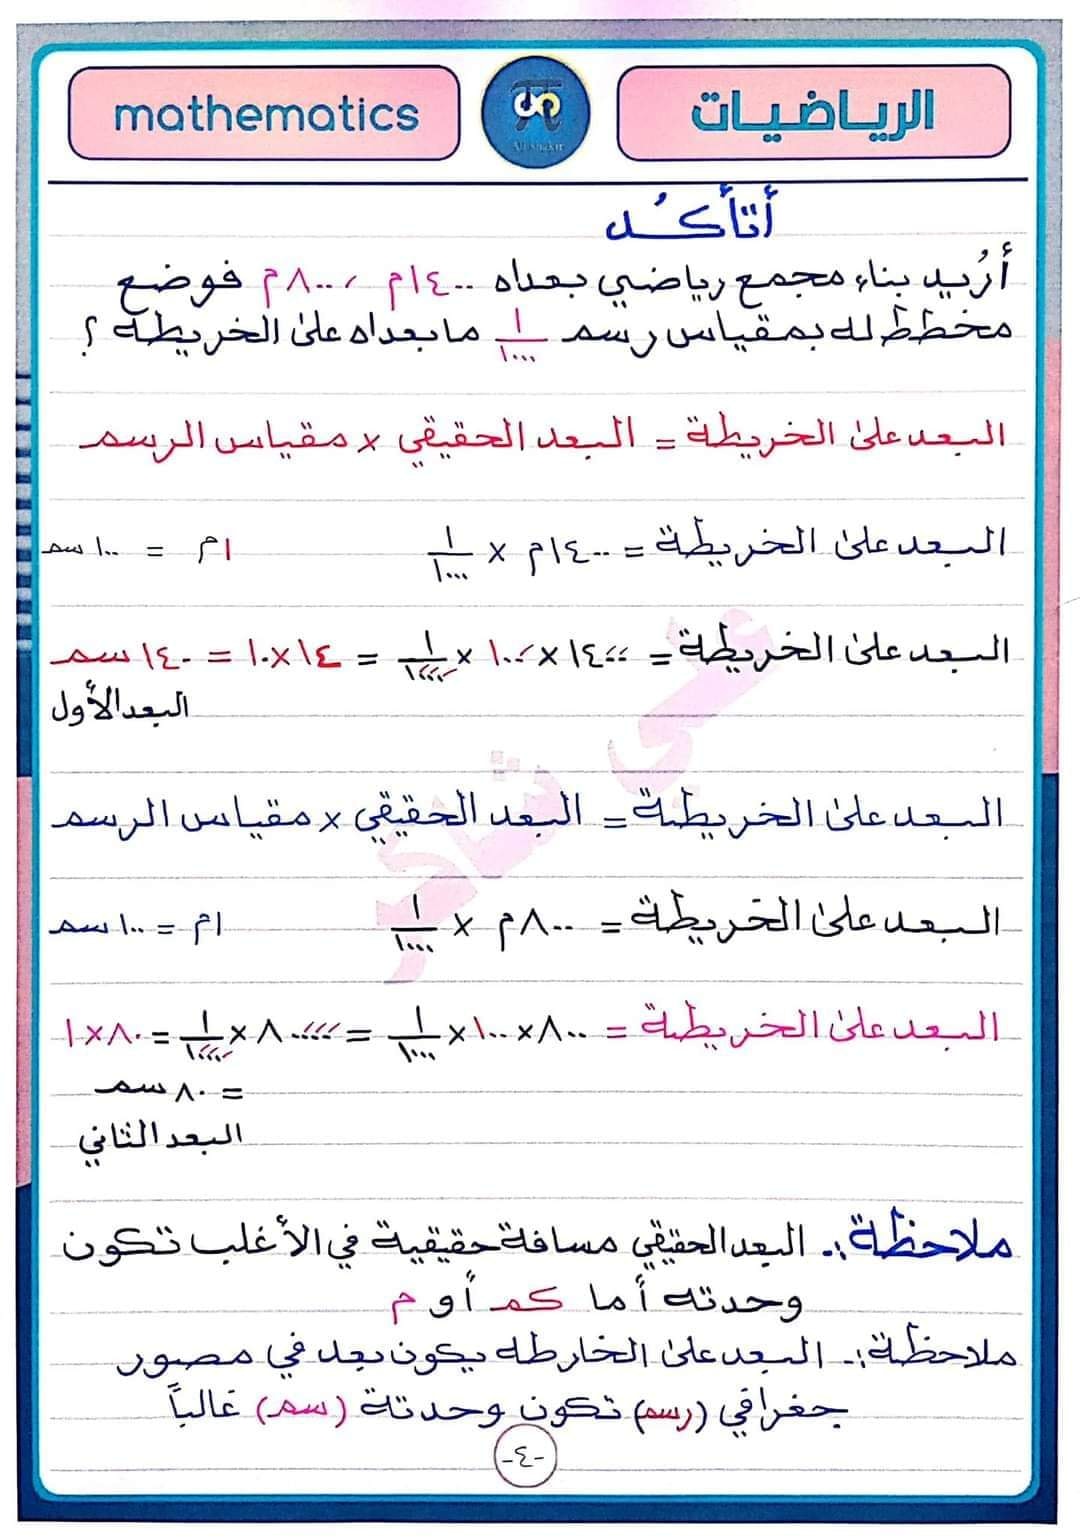 الرياضيات
mathematics
Ali shakir
أتأكُد
أُريد بناء مجمع رياضي بعداه ١٤٠٠م ، ٨٠٠م فوضع
مخطط له بمقياس رسم ١/١٠٠٠ ما بعداه على الخريطة ؟
البعد على الخريطة = البعد الحقيقي × مقياس الرسم
البعد على الخريطة = ١٤٠٠م × ١/١٠٠٠ ١م = ١٠٠ سم
البعد على الخريطة = ١٤٠٠ × ١٠٠ × ١/١٠٠٠ = ١٤×١٠ = ١٤٠ سم
البعد الأول
البعد على الخريطة = البعد الحقيقي × مقياس الرسم
البعد على الخريطة = ٨٠٠م × ١/١٠٠٠ ١م = ١٠٠ سم
البعد على الخريطة = ٨٠٠×١٠٠×١/١٠٠٠ = ٨٠٠٠٠×١/١٠٠٠ = ٨٠×١
= ٨٠ سم
البعد الثاني
ملاحظة :. البعد الحقيقي مسافة حقيقية في الأغلب تكون
وحدته أما كم أو م
ملاحظة :. البعد على الخارطه يكون بعد في مصور
جغرافي (رسم) تكون وحدتة (سم) غالباً
-٤-
علي شاكر